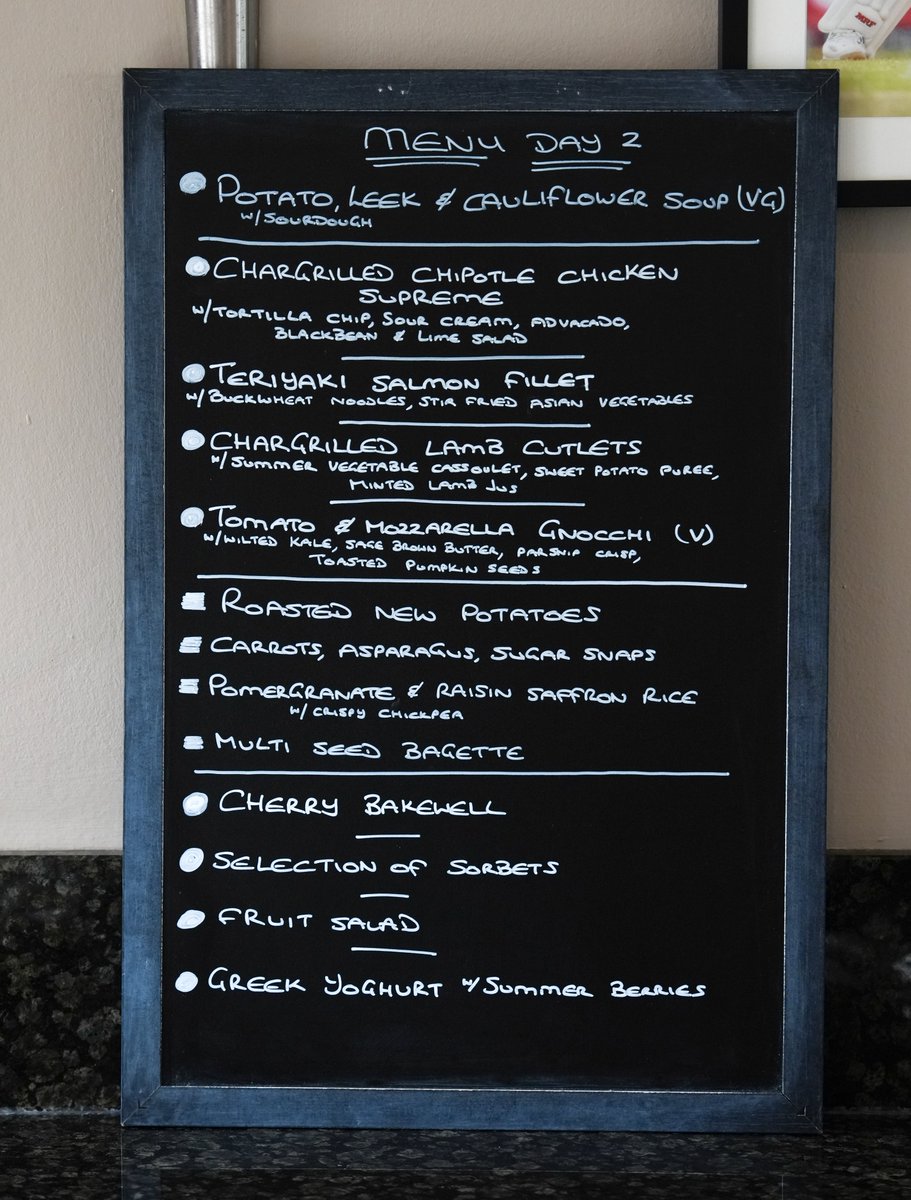 MRF
MENU DAY 2
POTATO, LEEK & CAULIFLOWER SOUP (VG)
W/ SOURDOUGH
CHARGRILLED CHIPOTLE CHICKEN
SUPREME
W/TORTILLA CHIP, SOUR CREAM, ADVACADO,
BLACKBEAN & LIME SALAD
TERIYAKI SALMON FILLET
W/ BUCKWHEAT NOODLES, STIR FRIED ASIAN VEGETABLES
CHARGRILLED LAMB CUTLETS
W/SUMMER VEGETABLE CASSOULET, SWEET POTATO PUREE,
MINTED LAMB JUS
TOMATO & MOZZARELLA GNOCCHI (V)
W/WILTED KALE, SAGE BROWN BUTTER, PARSNIP CRISP,
TOASTED PUMPKIN SEEDS
ROASTED NEW POTATOES
CARROTS, ASPARAGUS, SUGAR SNAPS
POMERGRANATE & RAISIN SAFFRON RICE
W/ CRISPY CHICKPEA
MULTI SEED BAGETTE
CHERRY BAKEWELL
SELECTION OF SORBETS
FRUIT SALAD
GREEK YOGHURT W/SUMMER BERRIES